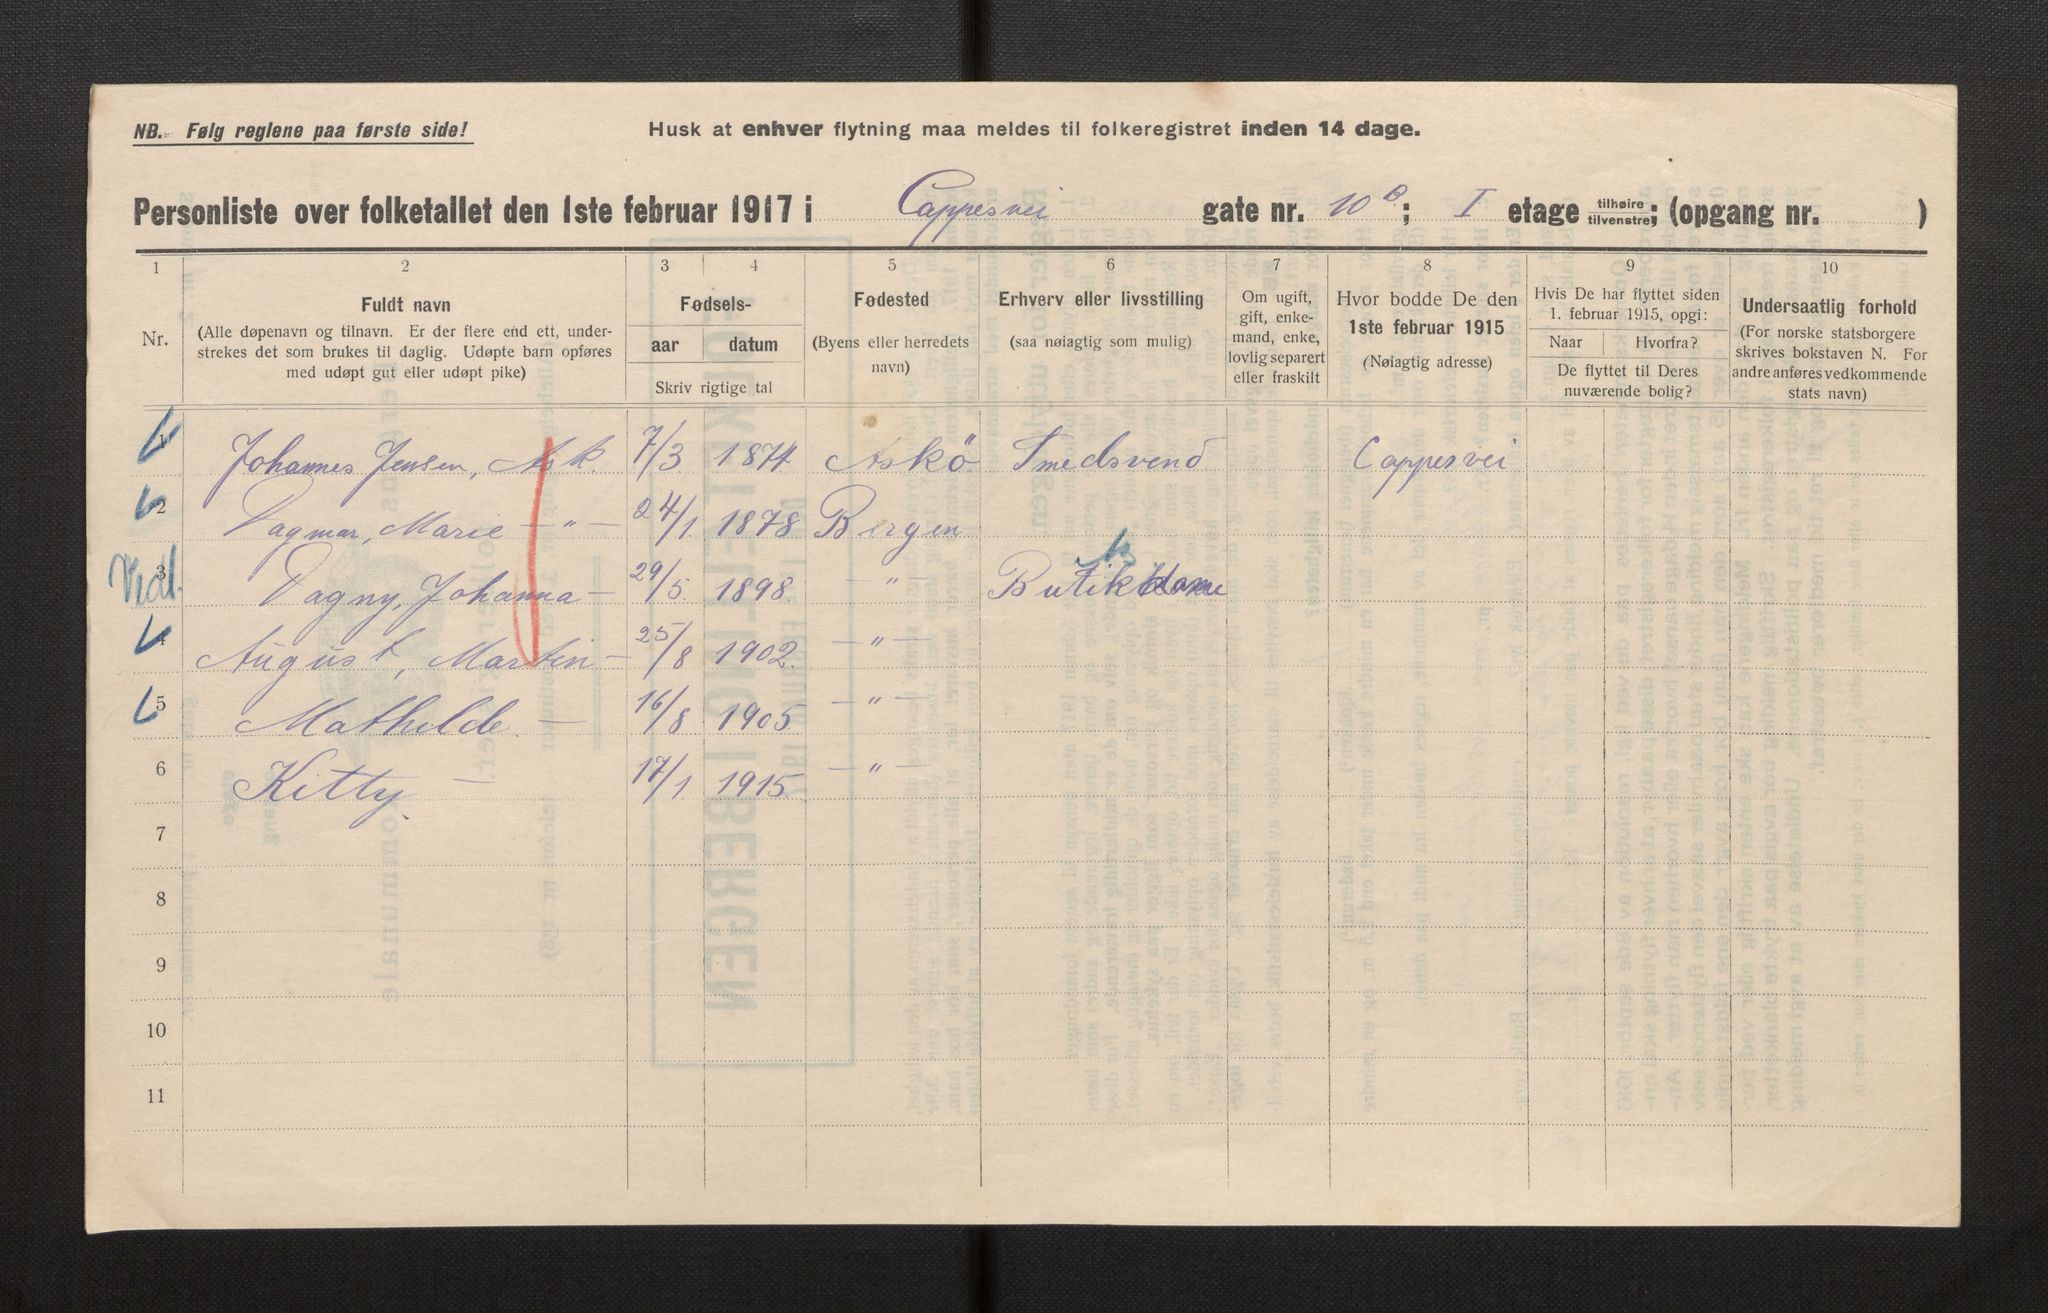 NB. Følg reglene paa første side!
Husk at enhver flytning maa meldes til folkeregistret inden 14 dage.
Personliste over folketallet den 1ste februar 1917 i Cappesvei gate nr. 10 B; I etage tilhøire/tilvenstre; (opgang nr. )
1 2 3 4 5 6 7 8 9 10
Nr.
Fuldt navn
(Alle døpenavn og tilnavn. Er der flere end ett, under-
strekes det som brukes til daglig. Udøpte barn opføres
med udøpt gut eller udøpt pike)
Fødsels-
aar datum
Skriv rigtige tal
Fødested
(Byens eller herredets
navn)
Erhverv eller livsstilling
(saa nøiagtig som mulig)
Om ugift,
gift, enke-
mand, enke,
lovlig separert
eller fraskilt
Hvor bodde De den
1ste februar 1915
(Nøiagtig adresse)
Hvis De har flyttet siden
1. februar 1915, opgi:
Naar Hvorfra?
De flyttet til Deres
nuværende bolig?
Undersaatlig forhold
(For norske statsborgere
skrives bokstaven N. For
andre anføres vedkommende
stats navn)
1 Johannes Jensen, Ask. 7/3 1874 Askö Smedsvend Cappesvei
2 Dagmar, Marie — " — 24/1 1878 Bergen
3 Dagny, Johanna — 29/5 1898 — " — Butikdame
4 August, Martin — 25/8 1902 — " —
5 Mathilde — 16/8 1905 — " —
6 Kitty — 17/1 1915 — " —
7
8
9
10
11